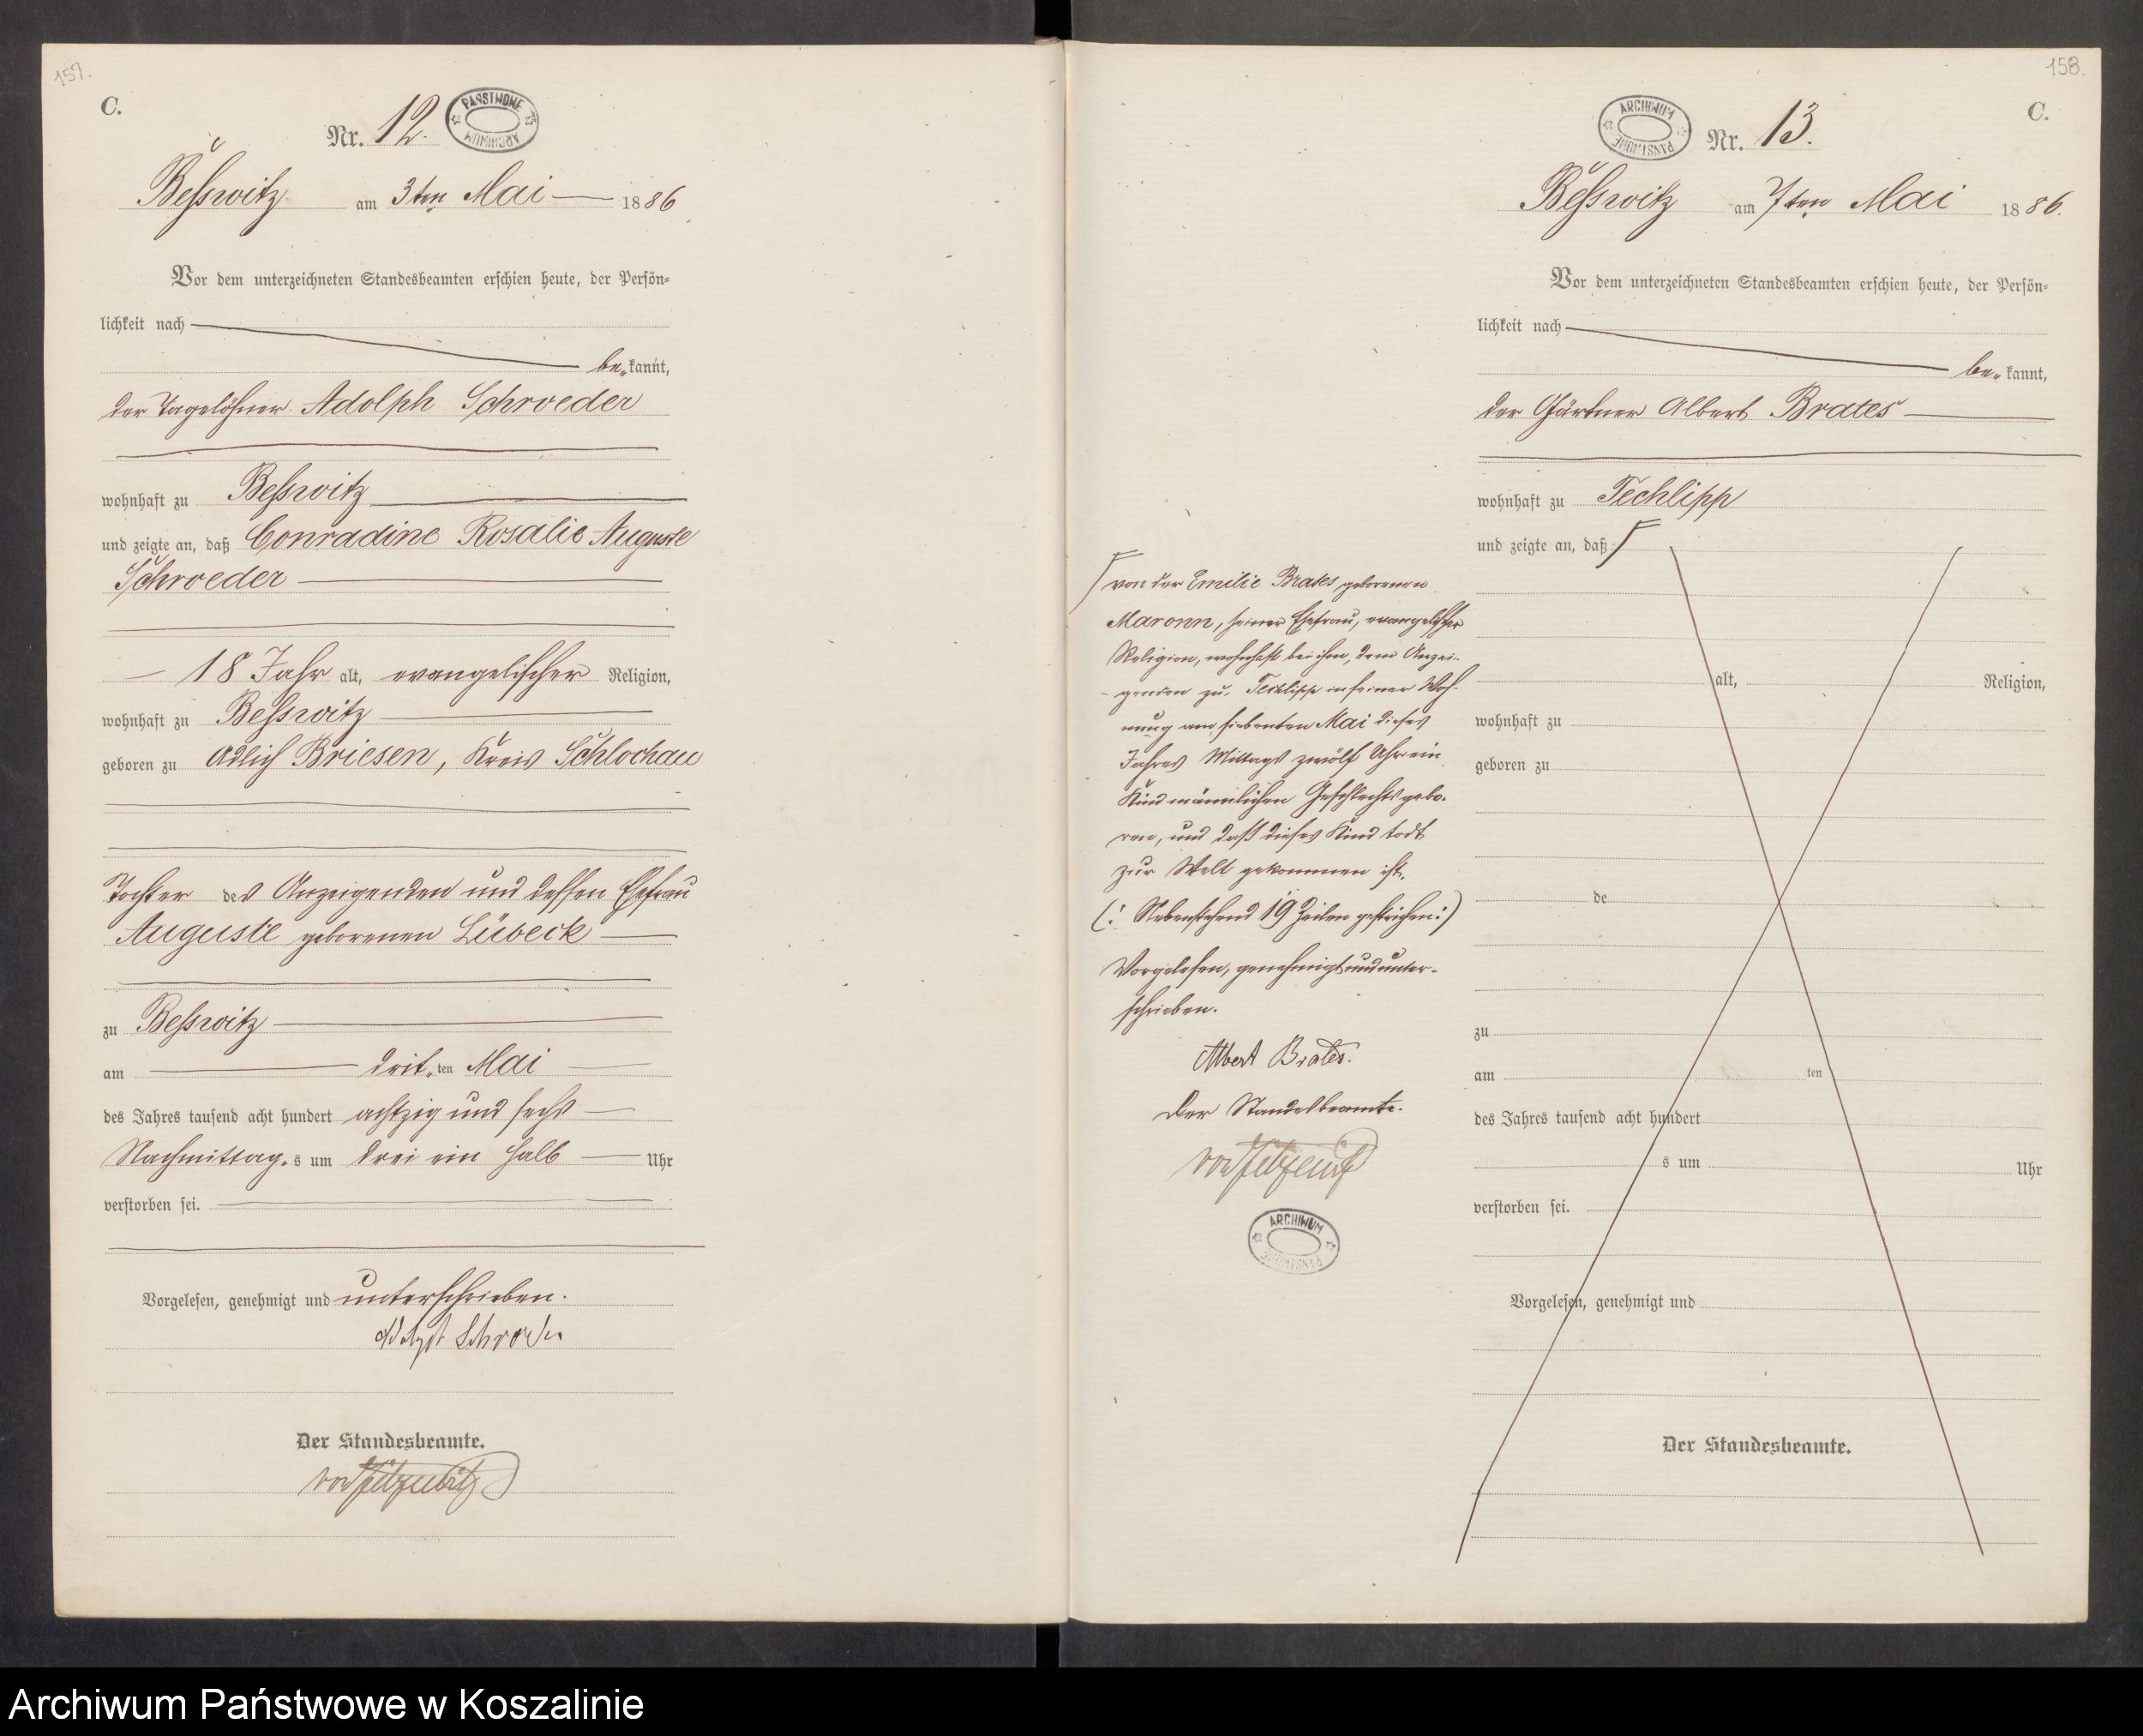 157.
C.
Nr. 12.
PAŃSTWOWE ARCHIWUM
Beßwitz am 3ten Mai 1886
Vor dem unterzeichneten Standesbeamten erschien heute, der Persön-
lichkeit nach
be kannt,
der Tagelöhner Adolph Schroeder
wohnhaft zu Beßwitz
und zeigte an, daß Conradine Rosalie Auguste
Schroeder
18 Jahr alt, evangelischer Religion,
wohnhaft zu Beßwitz
geboren zu Adlich Briesen, Kreis Schlochau
Tochter des Anzeigenden und dessen Ehefrau
Auguste geborenen Lübeck
zu Beßwitz
am drit ten Mai
des Jahres tausend acht hundert achtzig und sechs
Nachmittag s um drei ein halb Uhr
verstorben sei.
Vorgelesen, genehmigt und unterschrieben.
Schroder
Der Standesbeamte.
158.
C.
ARCHIWUM PAŃSTWOWE
Nr. 13.
Beßwitz am 7ten Mai 1886.
Vor dem unterzeichneten Standesbeamten erschien heute, der Persön-
lichkeit nach
be kannt,
der Gärtner Albert Brates
wohnhaft zu Techlipp
und zeigte an, daß
von der Emilie Brates geborenen
Maronn, seiner Ehefrau, evangelischer
Religion, wohnhaft bei ihm, dem Anzei-
genden zu Techlipp in seiner Woh-
nung am siebenten Mai dieses
Jahres Mittags zwölf Uhr ein
Kind männlichen Geschlechts gebo-
ren, und daß dieses Kind todt
zur Welt gekommen ist.
(: Nebenstehend 19 Zeilen gestrichen :)
Vorgelesen, genehmigt und unter-
schrieben.
Albert Brates.
Der Standesbeamte.
ARCHIWUM PAŃSTWOWE
alt, Religion,
wohnhaft zu
geboren zu
de
zu
am ten
des Jahres tausend acht hundert
s um Uhr
verstorben sei.
Vorgelesen, genehmigt und
Der Standesbeamte.
Archiwum Państwowe w Koszalinie